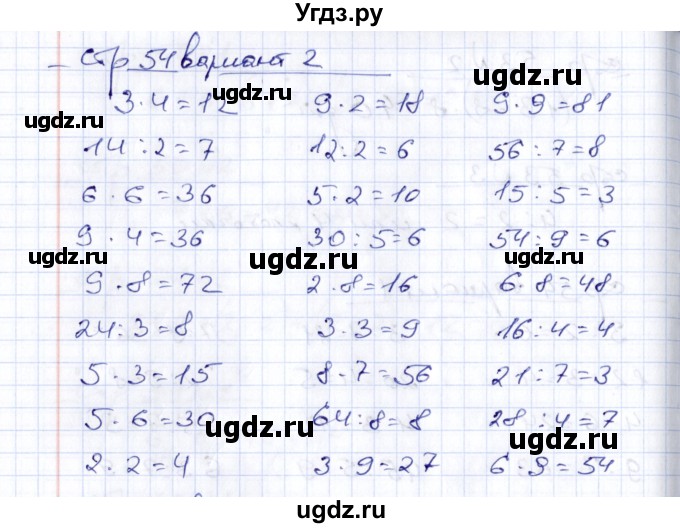 Угдз.ру
стр 54 вариант 2
3·4=12 9·2=18 9·9=81
14:2=7 12:2=6 56:7=8
6·6=36 5·2=10 15:5=3
9·4=36 30:5=6 54:9=6
9·8=72 2·8=16 6·8=48
24:3=8 3·3=9 16:4=4
5·3=15 8·7=56 21:7=3
5·6=30 64:8=8 28:4=7
2·2=4 3·9=27 6·9=54
ugdz.ru
ugdz.ru
ugdz.ru
ugdz.ru
ugdz.ru
ugdz.ru
ugdz.ru
ugdz.ru
ugdz.ru
ugdz.ru